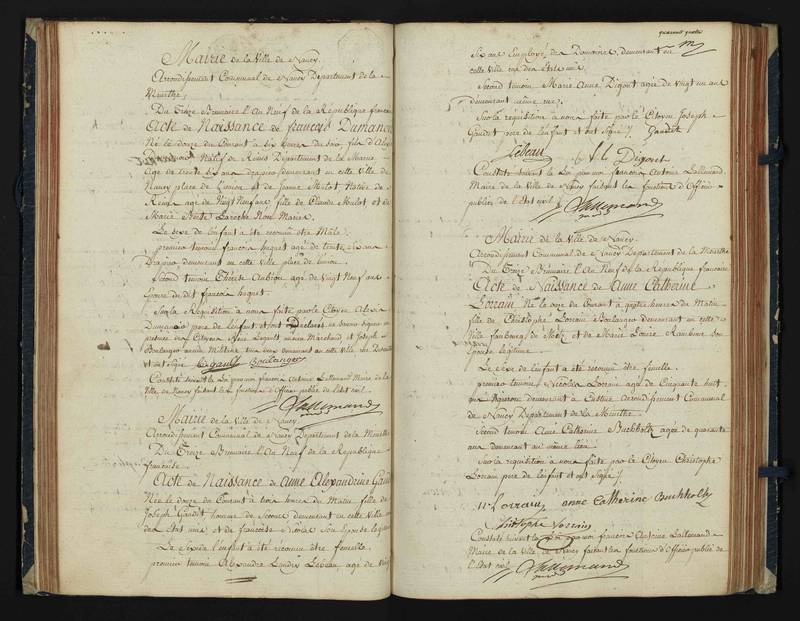 Mairie de la Ville de Nancy
Arrondissement Communal de Nancy Département de la
Meurthe.
Du Treize Brumaire l'An Neuf de la République française
Acte de Naissance de françois Dumanois
Né le douze du Courant à six heures du soir fils d'Alexis
Natif de Reims Département de la Marne
Age de trente six ans drapier demeurant en cette Ville de
Nancy place de et de Jeanne Mulot Native de
Reims age de Vingt Neuf ans fille de Claude Mulot, et de
Marie Laroche Non Mariés.
Le sexe de l'enfant a été reconnu être Mâle.
premier temoin françois huquet agé de trente six ans
Drapier demeurant en cette ville place de
Second temoin Thérèse Aubique age de vingt Neuf ans
Epouse de dit françois huquet.
Sur la Requisition a nous faite par le Citoyen Alexis
pere de l'enfant et ont Déclarés ne savoir signer en
présence des Citoyens Marchand et Joseph
Boulanger tous deux demeurant en cette Ville
Boulanger
Constaté suivant la Loi par moi françois Antoine Lallemand Maire de la
Ville de Nancy faisant les fonctions d'Officier public de l'état civil.
Lallemand
Mairie de la Ville de Nancy.
Arrondissement Communal de Nancy Département de la Meurthe
Du Treize Brumaire l'An Neuf de la République
française.
Acte de Naissance de Anne Alexandrine Gaudet
Née le douze du Courant a trois heures du Matin fille de
Joseph Gaudet homme de demeurant en cette Ville
des Etats unis et de françoise Nicolas son Epouse légitime
Le sexe de l'enfant a été reconnu être femelle.
premier temoin Alexandre Landry Lebeau, age de vingt
quarante quatre
six ans Employé des Domaines, demeurant en
cette Ville rue des Etats unis.
Second temoin Marie Anne Digout agée de vingt un ans
demeurant même rue.
Sur la réquisition à nous faite par le Citoyen Joseph
Gaudet pere de l'enfant et ont signé. Gaudet
Lebeau Digout
Constaté suivant la Loi par moi françois Antoine Lallemand
Maire de la Ville de Nancy faisant les fonctions d'Officier
public de l'état civil.
Lallemand
Mairie de la Ville de Nancy.
Arrondissement Communal de Nancy Département de la Meurthe
Du Treize Brumaire l'An Neuf de la République française
Acte de Naissance de Anne Catherine
Lorrain Née le onze du Courant à quatre heures du Matin
fille de Christophe Lorrain Boulanger demeurant en cette
Ville faubourg de Metz et de Marie Louise son
Epouse légitime.
Le sexe de l'enfant a été reconnu être femelle.
premier temoin Nicolas Lorrain age de Cinquante huit
ans Vigneron demeurant a Custine Arrondissement Communal
de Nancy Département de la Meurthe.
Second temoin Anne Catherine Buchholtz agée de quarante
ans demeurant au même lieu.
Sur la requisition à nous faite par le Citoyen Christophe
Lorrain pere de l'enfant et ont signé.
N Lorrain anne Catherine Buchholtz
Christophe Lorrain
Constaté suivant la Loi par moi françois Antoine Lallemand
Maire de la Ville de Nancy faisant les fonctions d'Officier public de
l'état civil. Lallemand